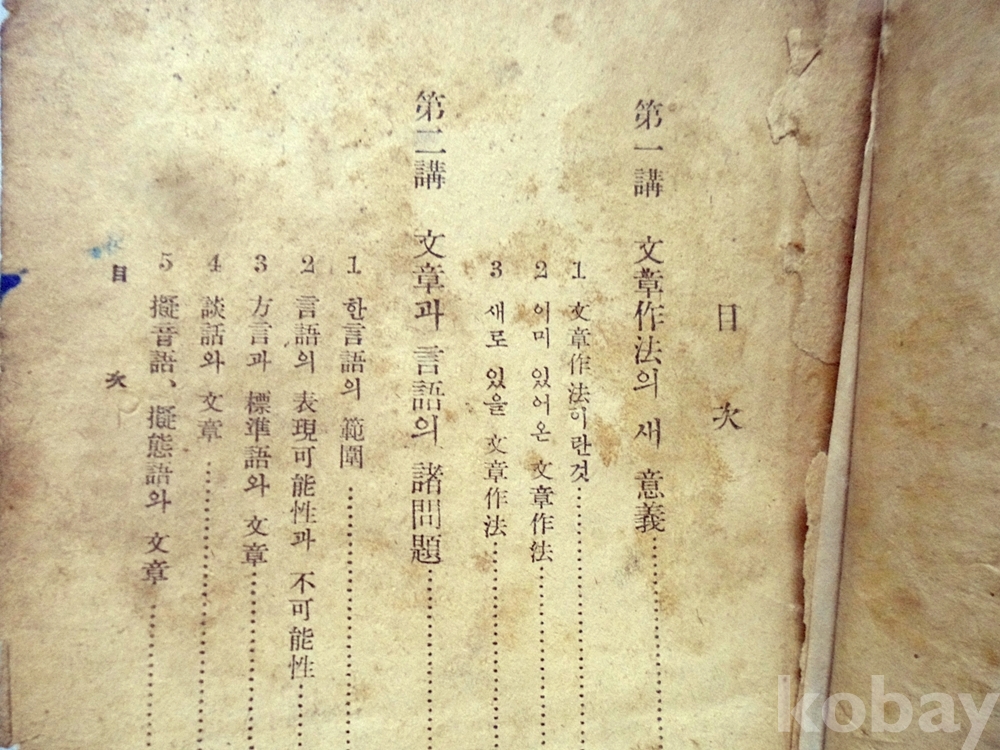 目次
第一講 文章作法의 새 意義
1 文章作法이란것
2 이미 있어온 文章作法
3 새로 있을 文章作法
第二講 文章과 言語의 諸問題
1 한言語의 範圍
2 言語의 表現可能性과 不可能性
3 方言과 標準語와 文章
4 談話와 文章
5 擬音語、擬態語와 文章
目次
kobay